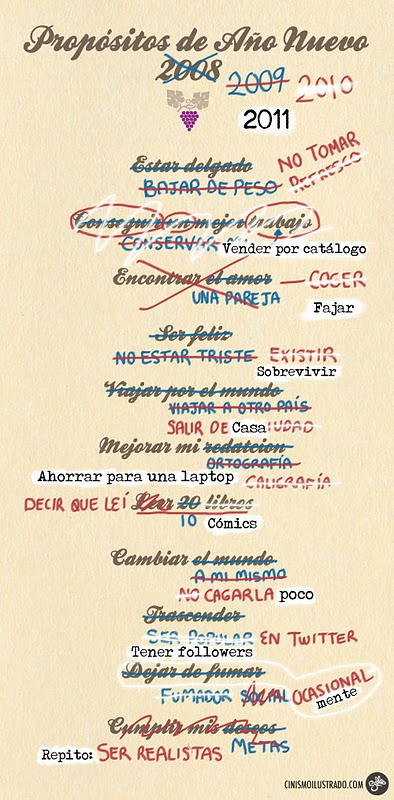 Propósitos de Año Nuevo
2008 2009 2010
2011
Estar delgado
NO TOMAR
REFRESCO
BAJAR DE PESO
Conseguir un mejor trabajo
CONSERVAR
Vender por catálogo
Encontrar el amor — COGER
UNA PAREJA
Fajar
Ser feliz
NO ESTAR TRISTE EXISTIR
Sobrevivir
Viajar por el mundo
VIAJAR A OTRO PAÍS
SALIR DE Casa IUDAD
Mejorar mi redatcion
ORTOGRAFÍA
Ahorrar para una laptop CALIGRAFÍA
DECIR QUE LEÍ Leer 20 libros
10 Cómics
Cambiar el mundo
A MI MISMO
NO CAGARLA poco
Trascender
SER POPULAR EN TWITTER
Tener followers
Dejar de fumar
FUMADOR SOCIAL OCASIONAL
mente
Cumplir mis deseos
METAS
Repito: SER REALISTAS
CINISMOILUSTRADO.COM